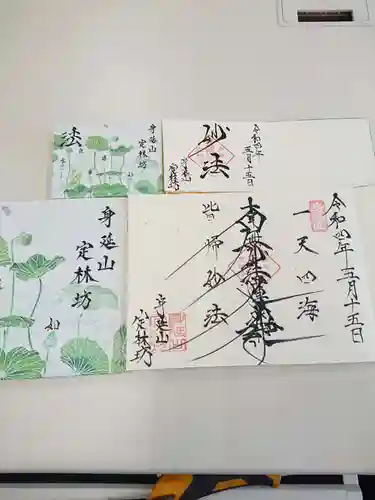 法
身延山
定林坊
妙法
令和四年
五月十五日
身延山
定林坊
身延山
定林坊
如
法
令和四年五月十五日
一天四海
南無妙法蓮華経
皆帰妙法
身延山
定林坊